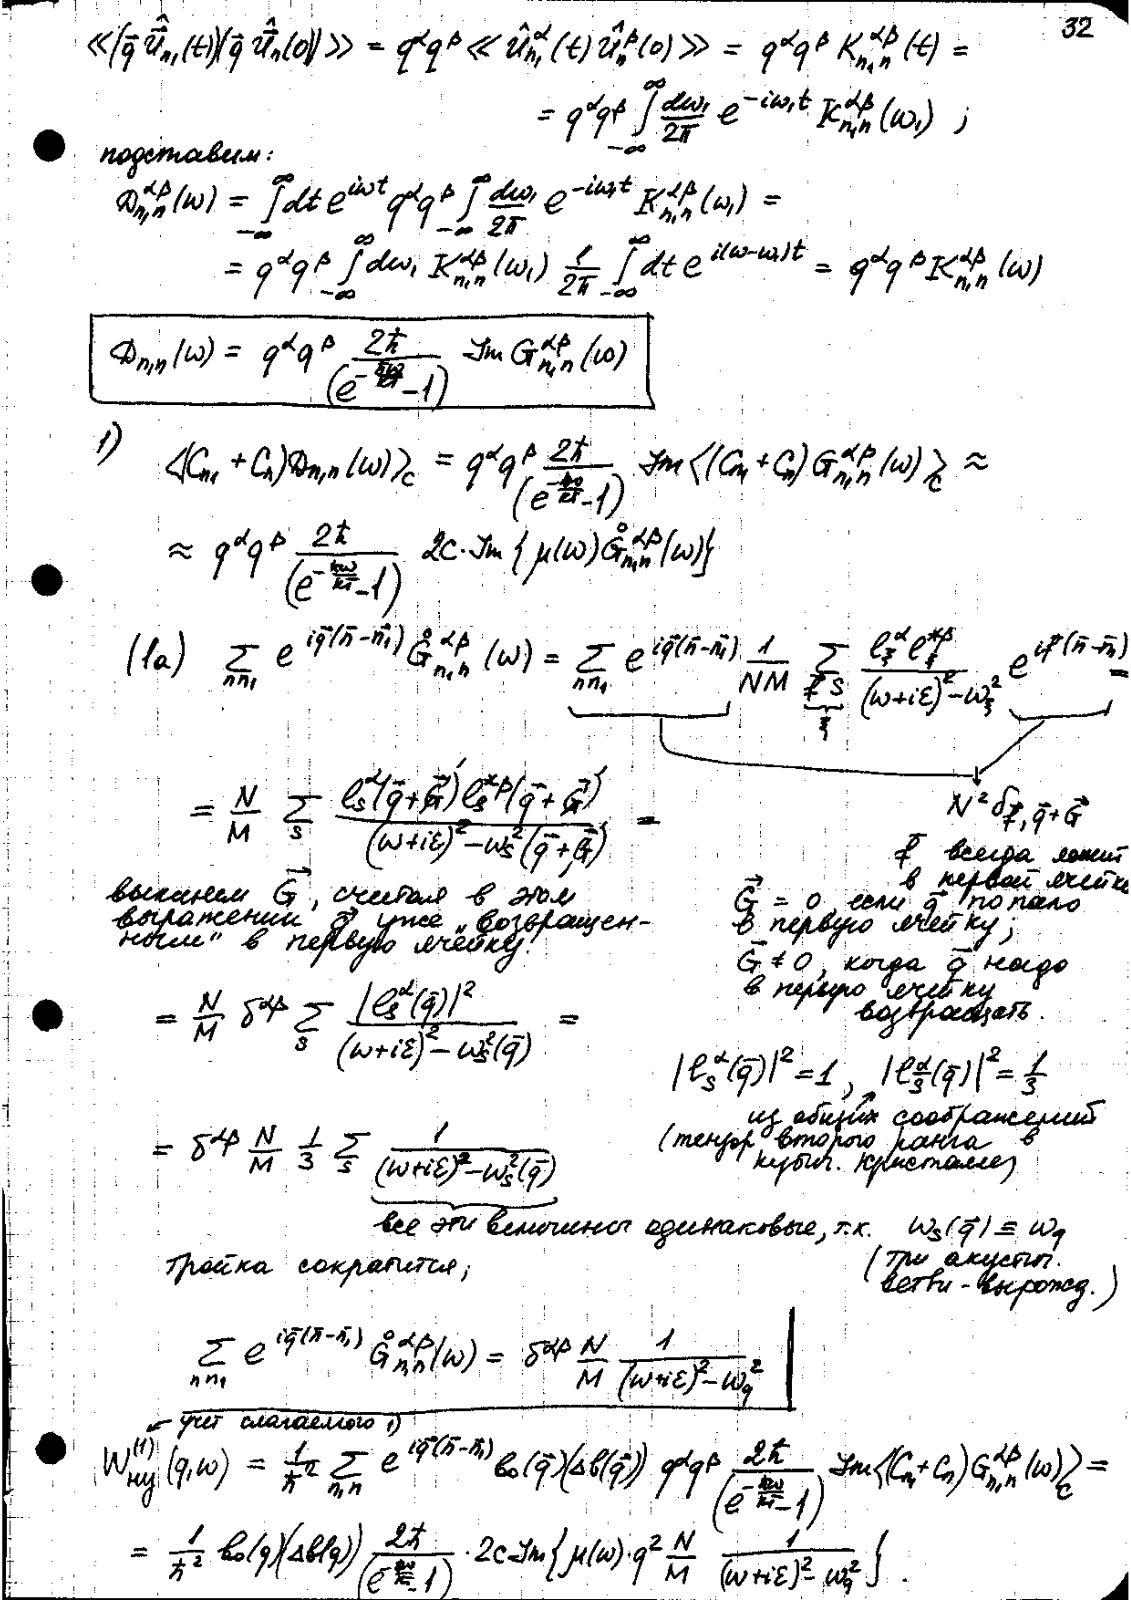 32
≪(q⃗ û⃗ₙ₁(t))(q⃗ û⃗ₙ(0))≫ = q^α q^β ≪û^α_{n₁}(t) û^β_n(0)≫ = q^α q^β K^{αβ}_{n₁n}(t) =
= q^α q^β ∫_{-∞}^{∞} dω₁/2π e^{-iω₁t} K^{αβ}_{n₁n}(ω₁) ;
подставим:
D^{αβ}_{n₁n}(ω) = ∫_{-∞}^{∞} dt e^{iωt} q^α q^β ∫_{-∞}^{∞} dω₁/2π e^{-iω₁t} K^{αβ}_{n₁n}(ω₁) =
= q^α q^β ∫_{-∞}^{∞} dω₁ K^{αβ}_{n₁n}(ω₁) 1/2π ∫_{-∞}^{∞} dt e^{i(ω-ω₁)t} = q^α q^β K^{αβ}_{n₁n}(ω)
D_{n₁n}(ω) = q^α q^β 2ħ/(e^{-ħω/kT}-1) Im G^{αβ}_{n₁n}(ω)
1) <(C_{n₁} + C_n) D_{n₁n}(ω)>_c = q^α q^β 2ħ/(e^{-ħω/kT}-1) Im<(C_{n₁} + C_n) G^{αβ}_{n₁n}(ω)>_c ≈
≈ q^α q^β 2ħ/(e^{-ħω/kT}-1) 2c·Im{μ(ω) G̊^{αβ}_{n₁n}(ω)}
(1a) Σ_{nn₁} e^{iq⃗(n⃗-n⃗₁)} G̊^{αβ}_{n₁n}(ω) = Σ_{nn₁} e^{iq⃗(n⃗-n⃗₁)} 1/NM Σ_{f⃗ s} e^α_ξ e^{*β}_ξ/((ω+iε)²-ω_ξ²) e^{if⃗(n⃗₁-n⃗)} =
ξ
= N/M Σ_s e^α_s(q⃗+G⃗) e^{*β}_s(q⃗+G⃗)/((ω+iε)²-ω_s²(q⃗+G⃗)) =
N² δ_{f⃗, q⃗+G⃗}
f⃗ всегда лежит
в первой ячейке
G⃗ = 0, если q⃗ попало
в первую ячейку;
G⃗ ≠ 0, когда q⃗ надо
в первую ячейку
возвращать.
выкинем G⃗, считая в этом
выражении q⃗ уже „возвращен-
ным" в первую ячейку.
= N/M δ^{αβ} Σ_s |e^α_s(q⃗)|²/((ω+iε)²-ω_s²(q⃗)) =
|e^α_s(q⃗)|² = 1, |e^α_s(q⃗)|² = 1/3
из общих соображений
(тензор второго ранга в
кубич. кристалле)
= δ^{αβ} N/M 1/3 Σ_s 1/((ω+iε)²-ω_s²(q⃗))
все эти величины одинаковые, т.к. ω_s(q⃗) ≡ ω_q
(три акустич.
ветви - вырожд.)
тройка сократится;
Σ_{nn₁} e^{iq⃗(n⃗-n⃗₁)} G̊^{αβ}_{n₁n}(ω) = δ^{αβ} N/M 1/((ω+iε)²-ω_q²)
учет слагаемого 1)
W^{(1)}_{ну}(q,ω) = 1/ħ² Σ_{n₁n} e^{iq⃗(n⃗-n⃗₁)} b₀(q⃗)(Δb(q⃗)) q^α q^β 2ħ/(e^{-ħω/kT}-1) Im<(C_{n₁}+C_n) G^{αβ}_{n₁n}(ω)>_c =
= 1/ħ² b₀(q)(Δb(q)) 2ħ/(e^{-ħω/kT}-1) · 2c Im{μ(ω)·q² N/M 1/((ω+iε)²-ω_q²)}.